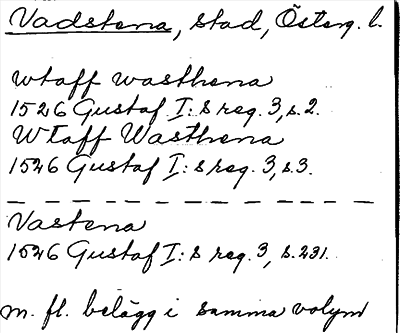 Vadstena, stad, Österg. l.
wtaff wasthena
1526 Gustaf I:s reg. 3, s. 2.
Wtaff Wasthena
1526 Gustaf I:s reg. 3, s. 3.
Vastena
1526 Gustaf I:s reg. 3, s. 231.
m. fl. belägg i samma volym